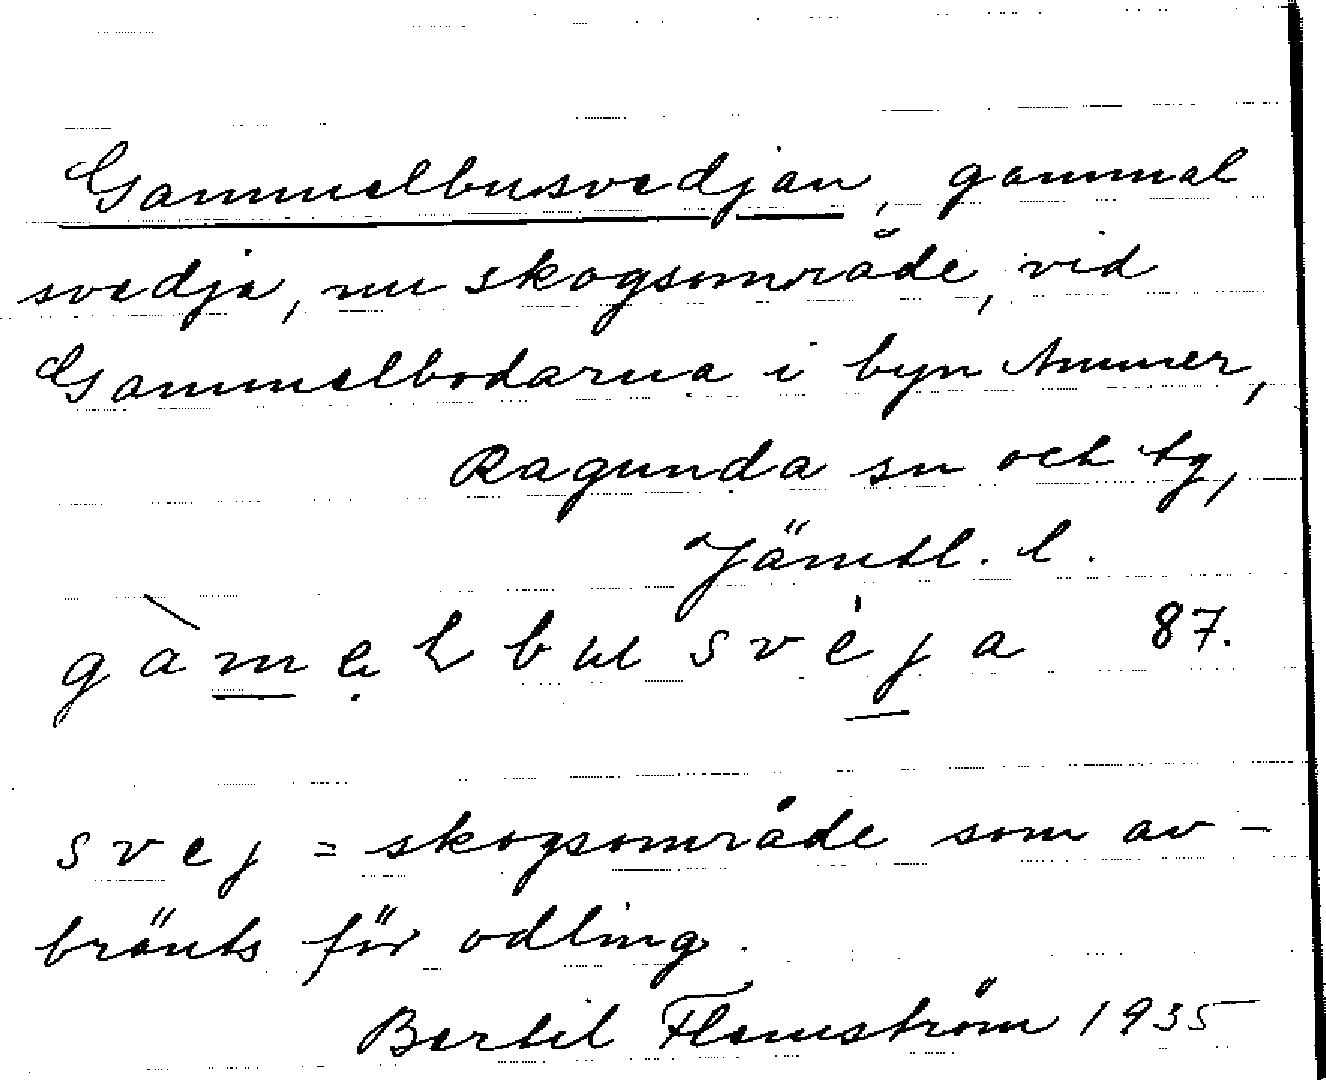 Gammelbusvedjan, gammal
svedja, nu skogsområde, vid
Gammelbodarna i byn Ammer,
Ragunda sn och tg,
Jämtl. l.
gàmelbusvéja 87.
svej = skogsområde som av-
bränts för odling.
Bertil Flemström 1935